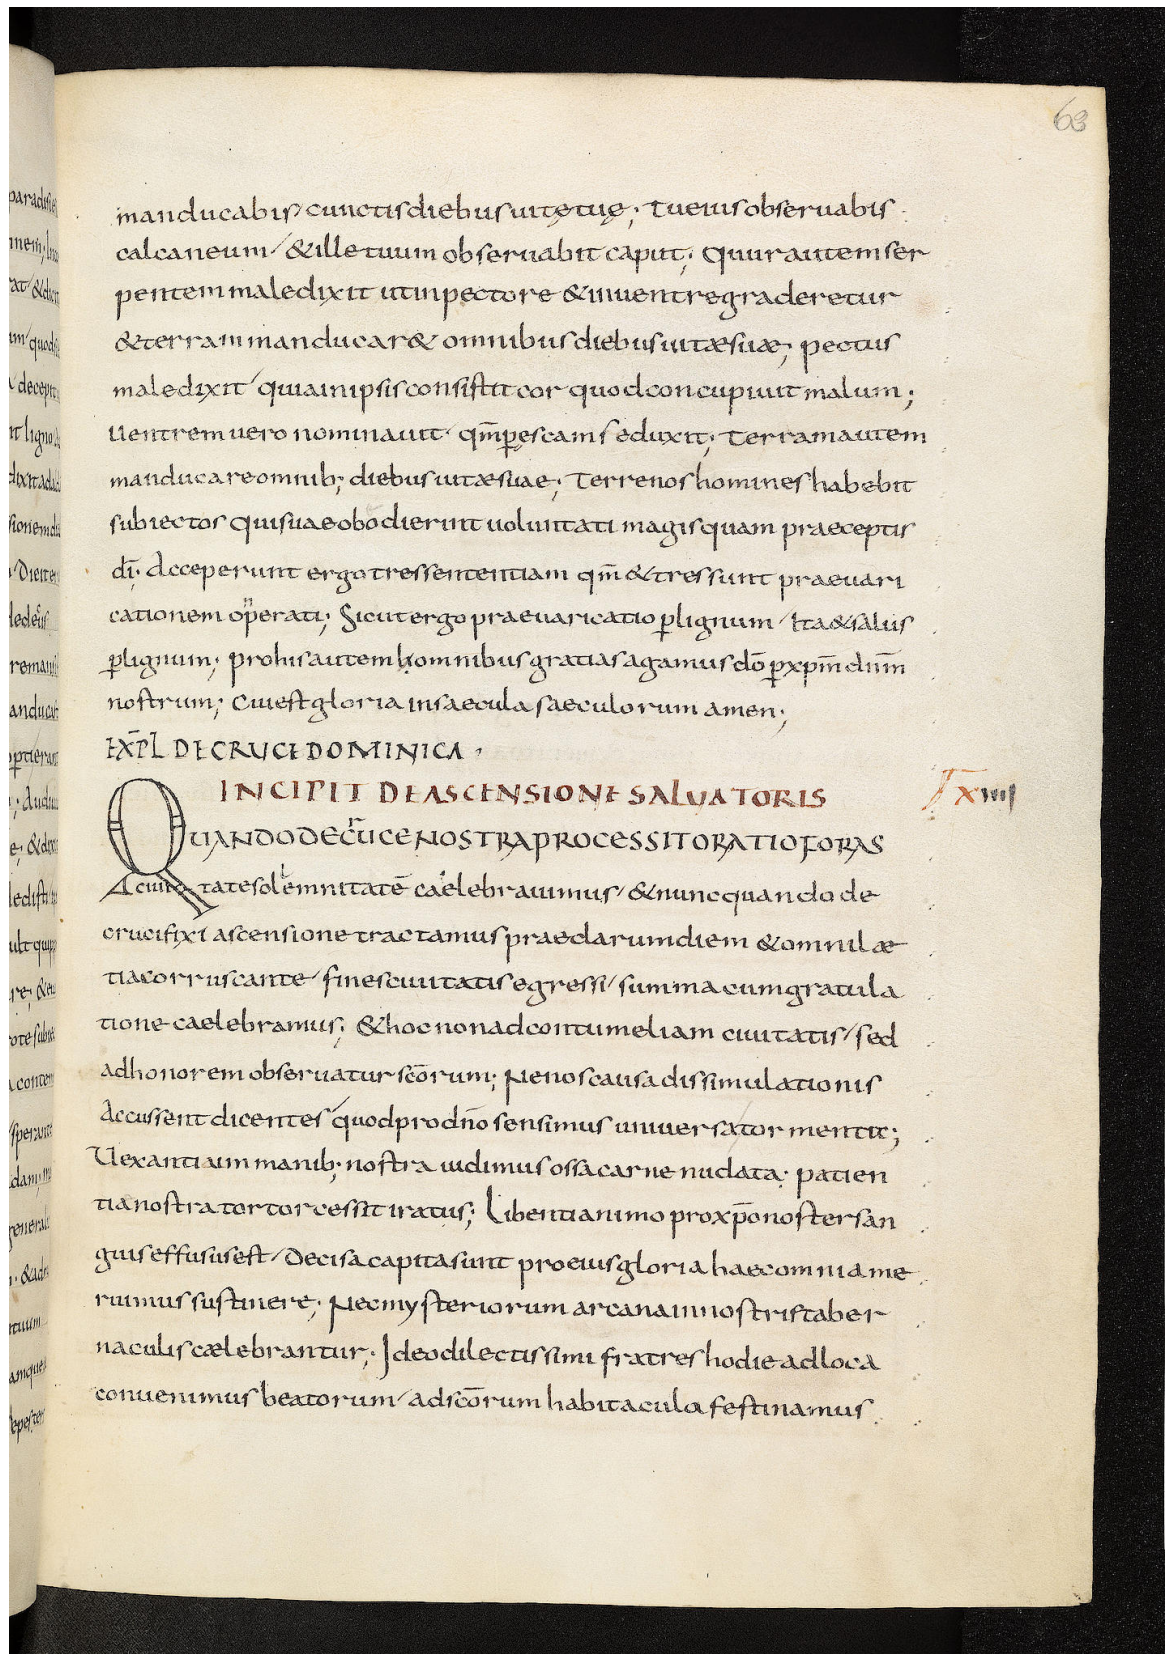 63
manducabis cunctis diebus uitę tuę; Tu eius obseruabis
calcaneum / & ille tuum obseruabit caput; Quur autem ser
pentem maledixit ut in pectore & in uentre graderetur
& terram manducar& omnibus diebus uitæ suæ; pectus
maledixit / quia in ipsis consistit cor quod concupiuit malum;
Uentrem uero nominauit · qm̄ ꝑ escam seduxit; Terram autem
manducare omnib; diebus uitæ suae; Terrenos homines habebit
subiectos qui suae obodierint uoluntati magis quam praeceptis
dī; Acceperunt ergo tres sententiam qm̄ & tres sunt praeuari
cationem operati; Sicut ergo praeuaricatio ꝑ lignum / Ita & salus
ꝑ lignum; pro his autem homnibus gratias agamus dō ꝑ xp̄m dnm̄
nostrum; Cui est gloria in saecula saeculorum amen;
EXP̄L DE CRUCE DOMINICA ·
INCIPIT DE ASCENSIONE SALUATORIS
xiiii
QUANDO DE CRUCE NOSTRA PROCESSIT ORATIO FORAS
A ciuitate solemnitatē caelebrauimus / & nunc quando de
crucifixi ascensione tractamus praeclarum diem & omni læ
tia corruscante / fines ciuitatis egressi / summa cum gratula
tione caelebramus; & hoc non ad contumeliam ciuitatis / sed
ad honorem obseruatur scōrum; Ne nos causa dissimulationis
Accussent dicentes quod pro dn̄o sensimus uniuersator mentit;
Uexanti aim manib; nostra uidimus ossa carne nudata · patien
tia nostra tortor cessit iratus; Libenti animo pro xp̄o noster san
guis effusus est / Decisa capita sunt pro eius gloria haec omnia me
ruimus sustinere; Nec mysteriorum arcana in nostris taber
naculis cælebrantur; Ideo dilectissimi fratres hodie ad loca
conuenimus beatorum / ad scōrum habitacula festinamus